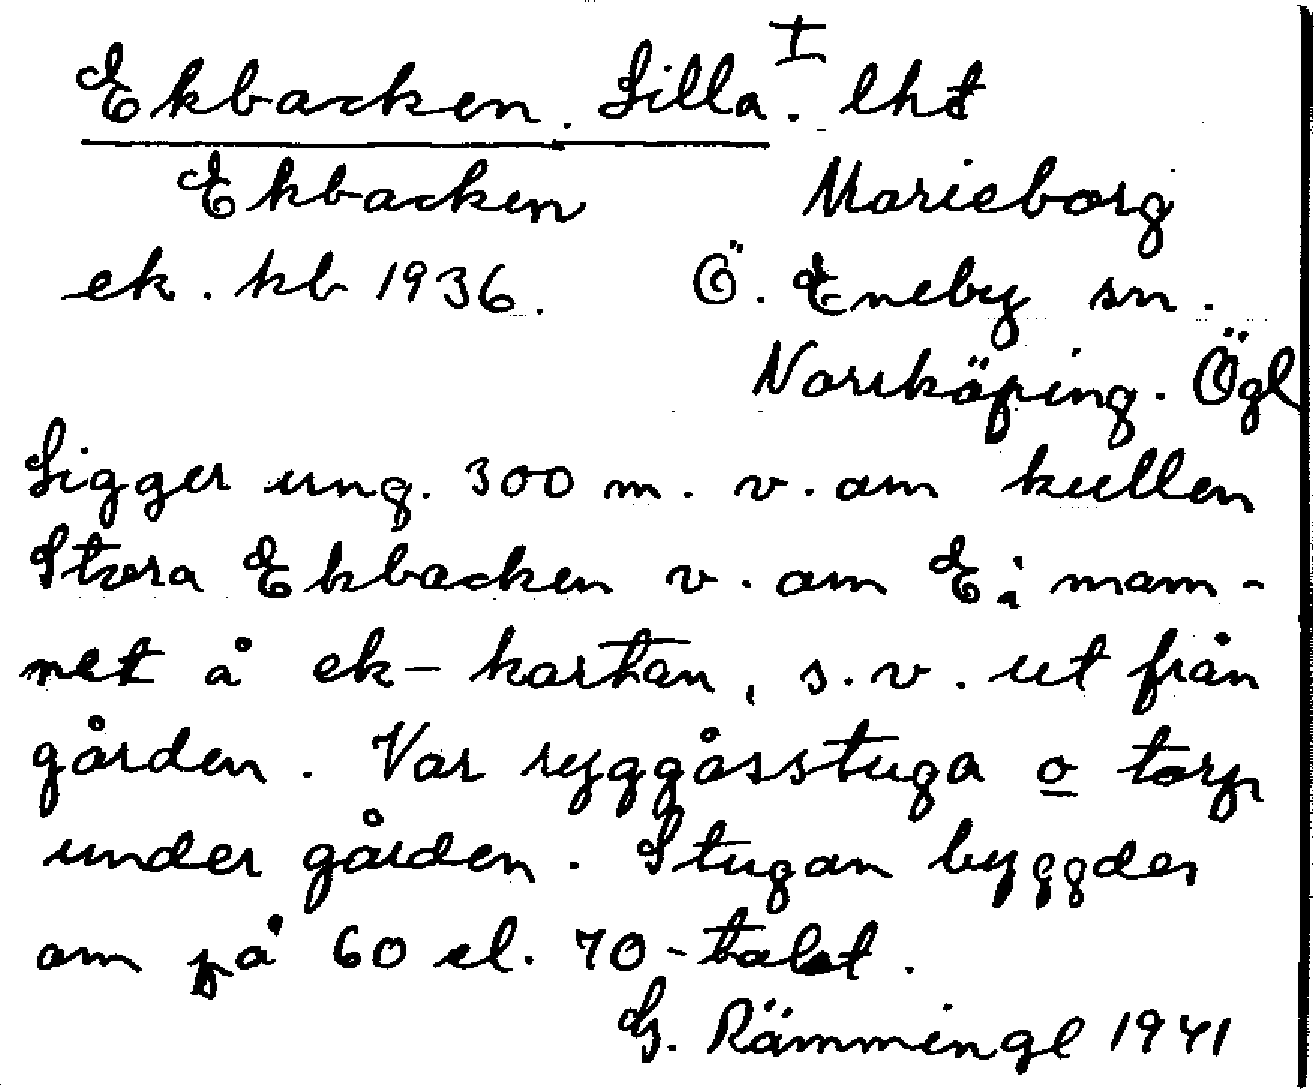 Ekbacken. Lilla. I lht
Ekbacken Marieborg
ek. kb 1936. Ö. Eneby sn.
Norrköping. Ögl
Ligger ung. 300 m. v. om kullen
Stora Ekbacken v. om E i nam-
net å ek-kartan, s.v. ut från
gården. Var ryggåsstuga o torp
under gården. Stugan byggdes
om på 60 el. 70-talet.
G. Rämmingl 1941